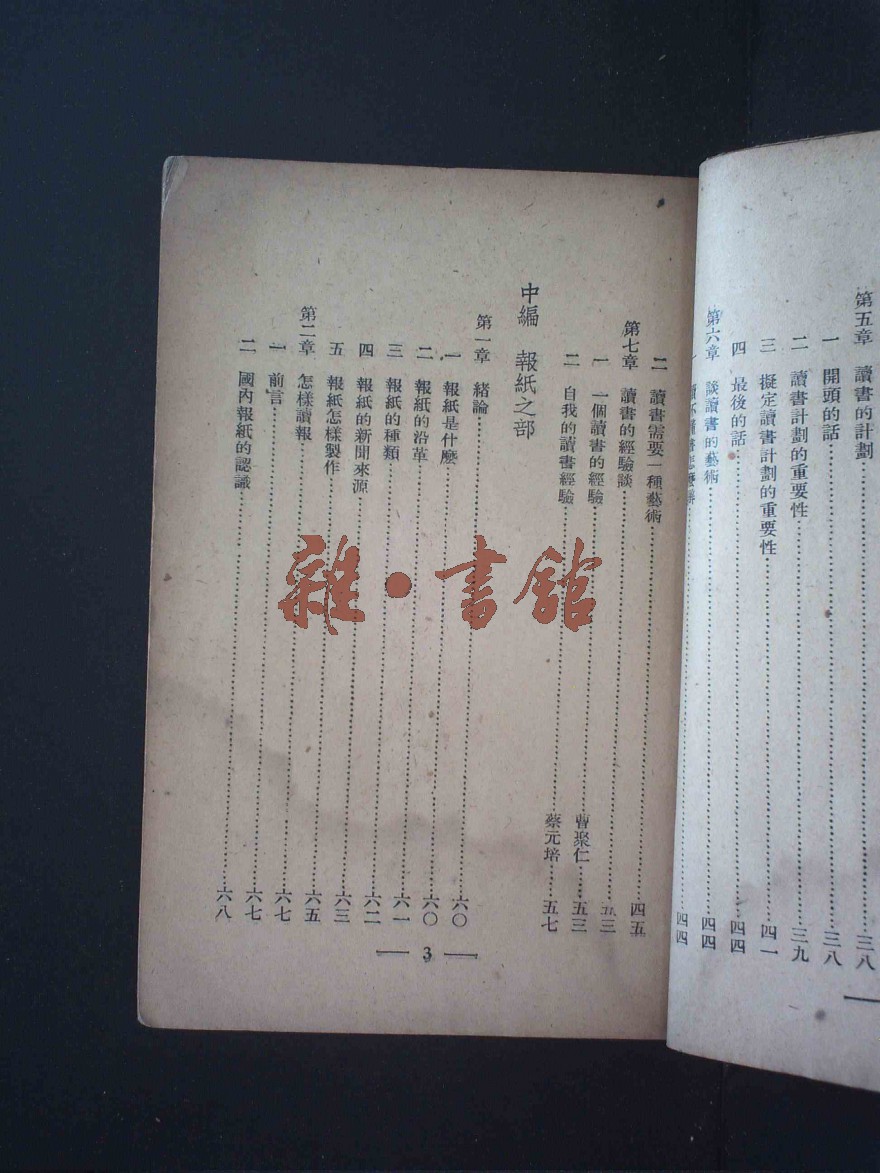 第五章 讀書的計劃……三八
一 開頭的話……三八
二 讀書計劃的重要性……三九
三 擬定讀書計劃的重要性……四一
四 最後的話……四四
第六章 談讀書的藝術……四四
一 讀不懂書怎麼辦……四四
二 讀書需要一種藝術……四五
第七章 讀書的經驗談……五三
一 一個讀書的經驗……曹聚仁……五三
二 自我的讀書經驗……蔡元培……五七
中編 報紙之部
第一章 緒論……六〇
一 報紙是什麼……六〇
二 報紙的沿革……六一
三 報紙的種類……六二
四 報紙的新聞來源……六三
五 報紙怎樣製作……六五
第二章 怎樣讀報……六七
一 前言……六七
二 國內報紙的認識……六八
— 3 —
雜·書館